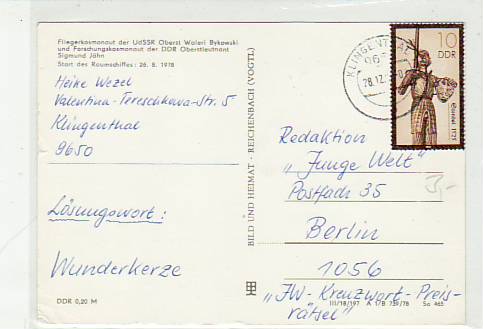 Fliegerkosmonaut der UdSSR Oberst Waleri Bykowski
und Forschungskosmonaut der DDR Oberstleutnant
Sigmund Jähn
Start des Raumschiffes: 26. 8. 1978
Heike Wezel
Valentina-Tereschkowa-Str. 5
Klingenthal
9650
Lösungswort:
Wunderkerze
DDR 0,20 M
BILD UND HEIMAT · REICHENBACH (VOGTL)
KLINGENTHAL
28.12.
10
DDR
1121
Redaktion
„Junge Welt"
Postfach 35
Berlin
1056
„JW-Kreuzwort-Preis-
rätsel"
III/18/197 A 1/B 739/78 So 465
3,-